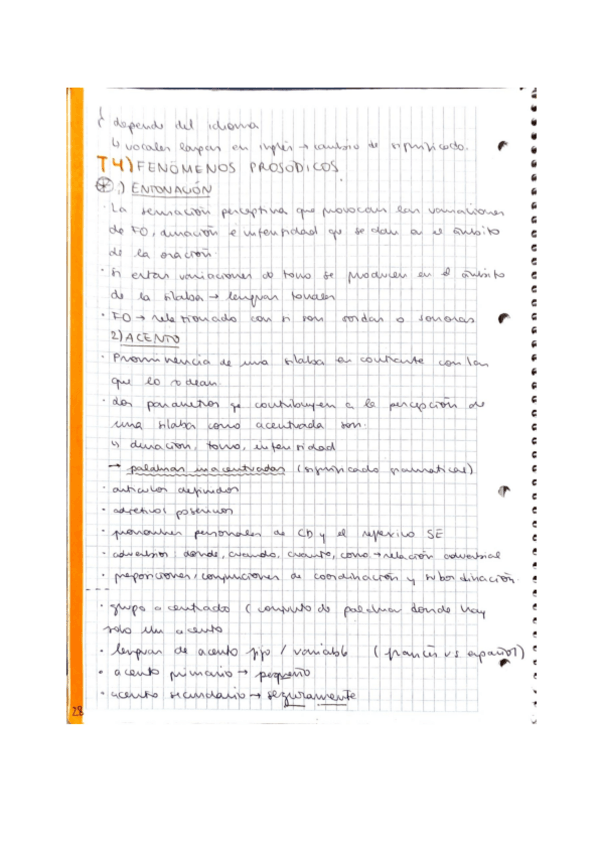 depende del idioma
↳ vocales largas en inglés → cambio de significado.
T4) FENÓMENOS PROSÓDICOS
1) ENTONACIÓN
· La sensación perceptiva que provocan las variaciones
de F0, duración e intensidad que se dan en el ámbito
de la oración.
· Si estas variaciones de tono se producen en el ámbito
de la sílaba → lenguas tonales
· F0 → relacionado con si son sordas o sonoras
2) ACENTO
· Prominencia de una sílaba en contraste con las
que lo rodean.
· Los parámetros qe contribuyen a la percepción de
una sílaba como acentuada son:
↳ duración, tono, intensidad
→ palabras inacentuadas (significado gramatical)
· artículos definidos
· adjetivos posesivos
· pronombres personales de CD y el reflexivo SE
· adverbios: donde, cuando, cuanto, como → relación adverbial
· preposiciones, conjunciones de coordinación y subordinación.
· grupo acentuado (conjunto de palabras donde hay
solo un acento
· lenguas de acento fijo / variable (francés vs español)
· acento primario → pequeño
· acento secundario → seguramente
28